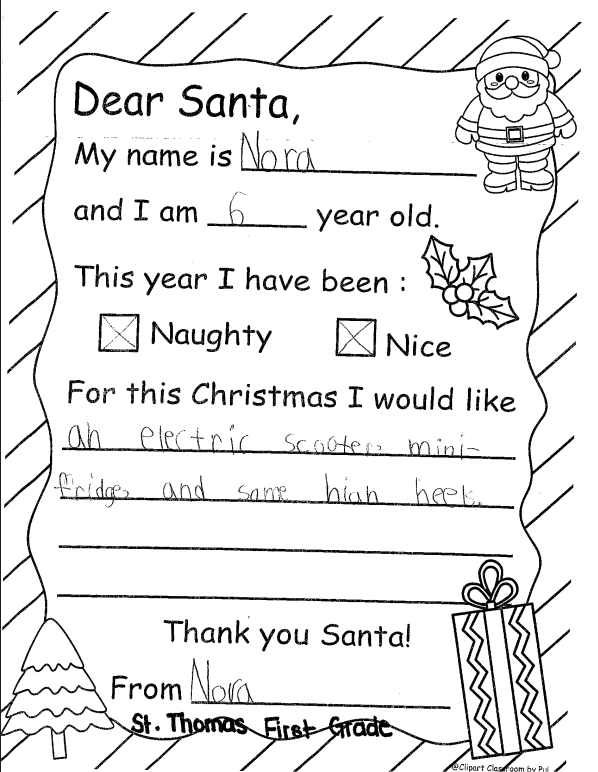 Dear Santa,
My name is Nora
and I am 6 year old.
This year I have been :
☒ Naughty ☒ Nice
For this Christmas I would like
an electric scooter, mini-
fridge, and some high heels.
Thank you Santa!
From Nora
St. Thomas First Grade
@Clipart Classroom by Pui